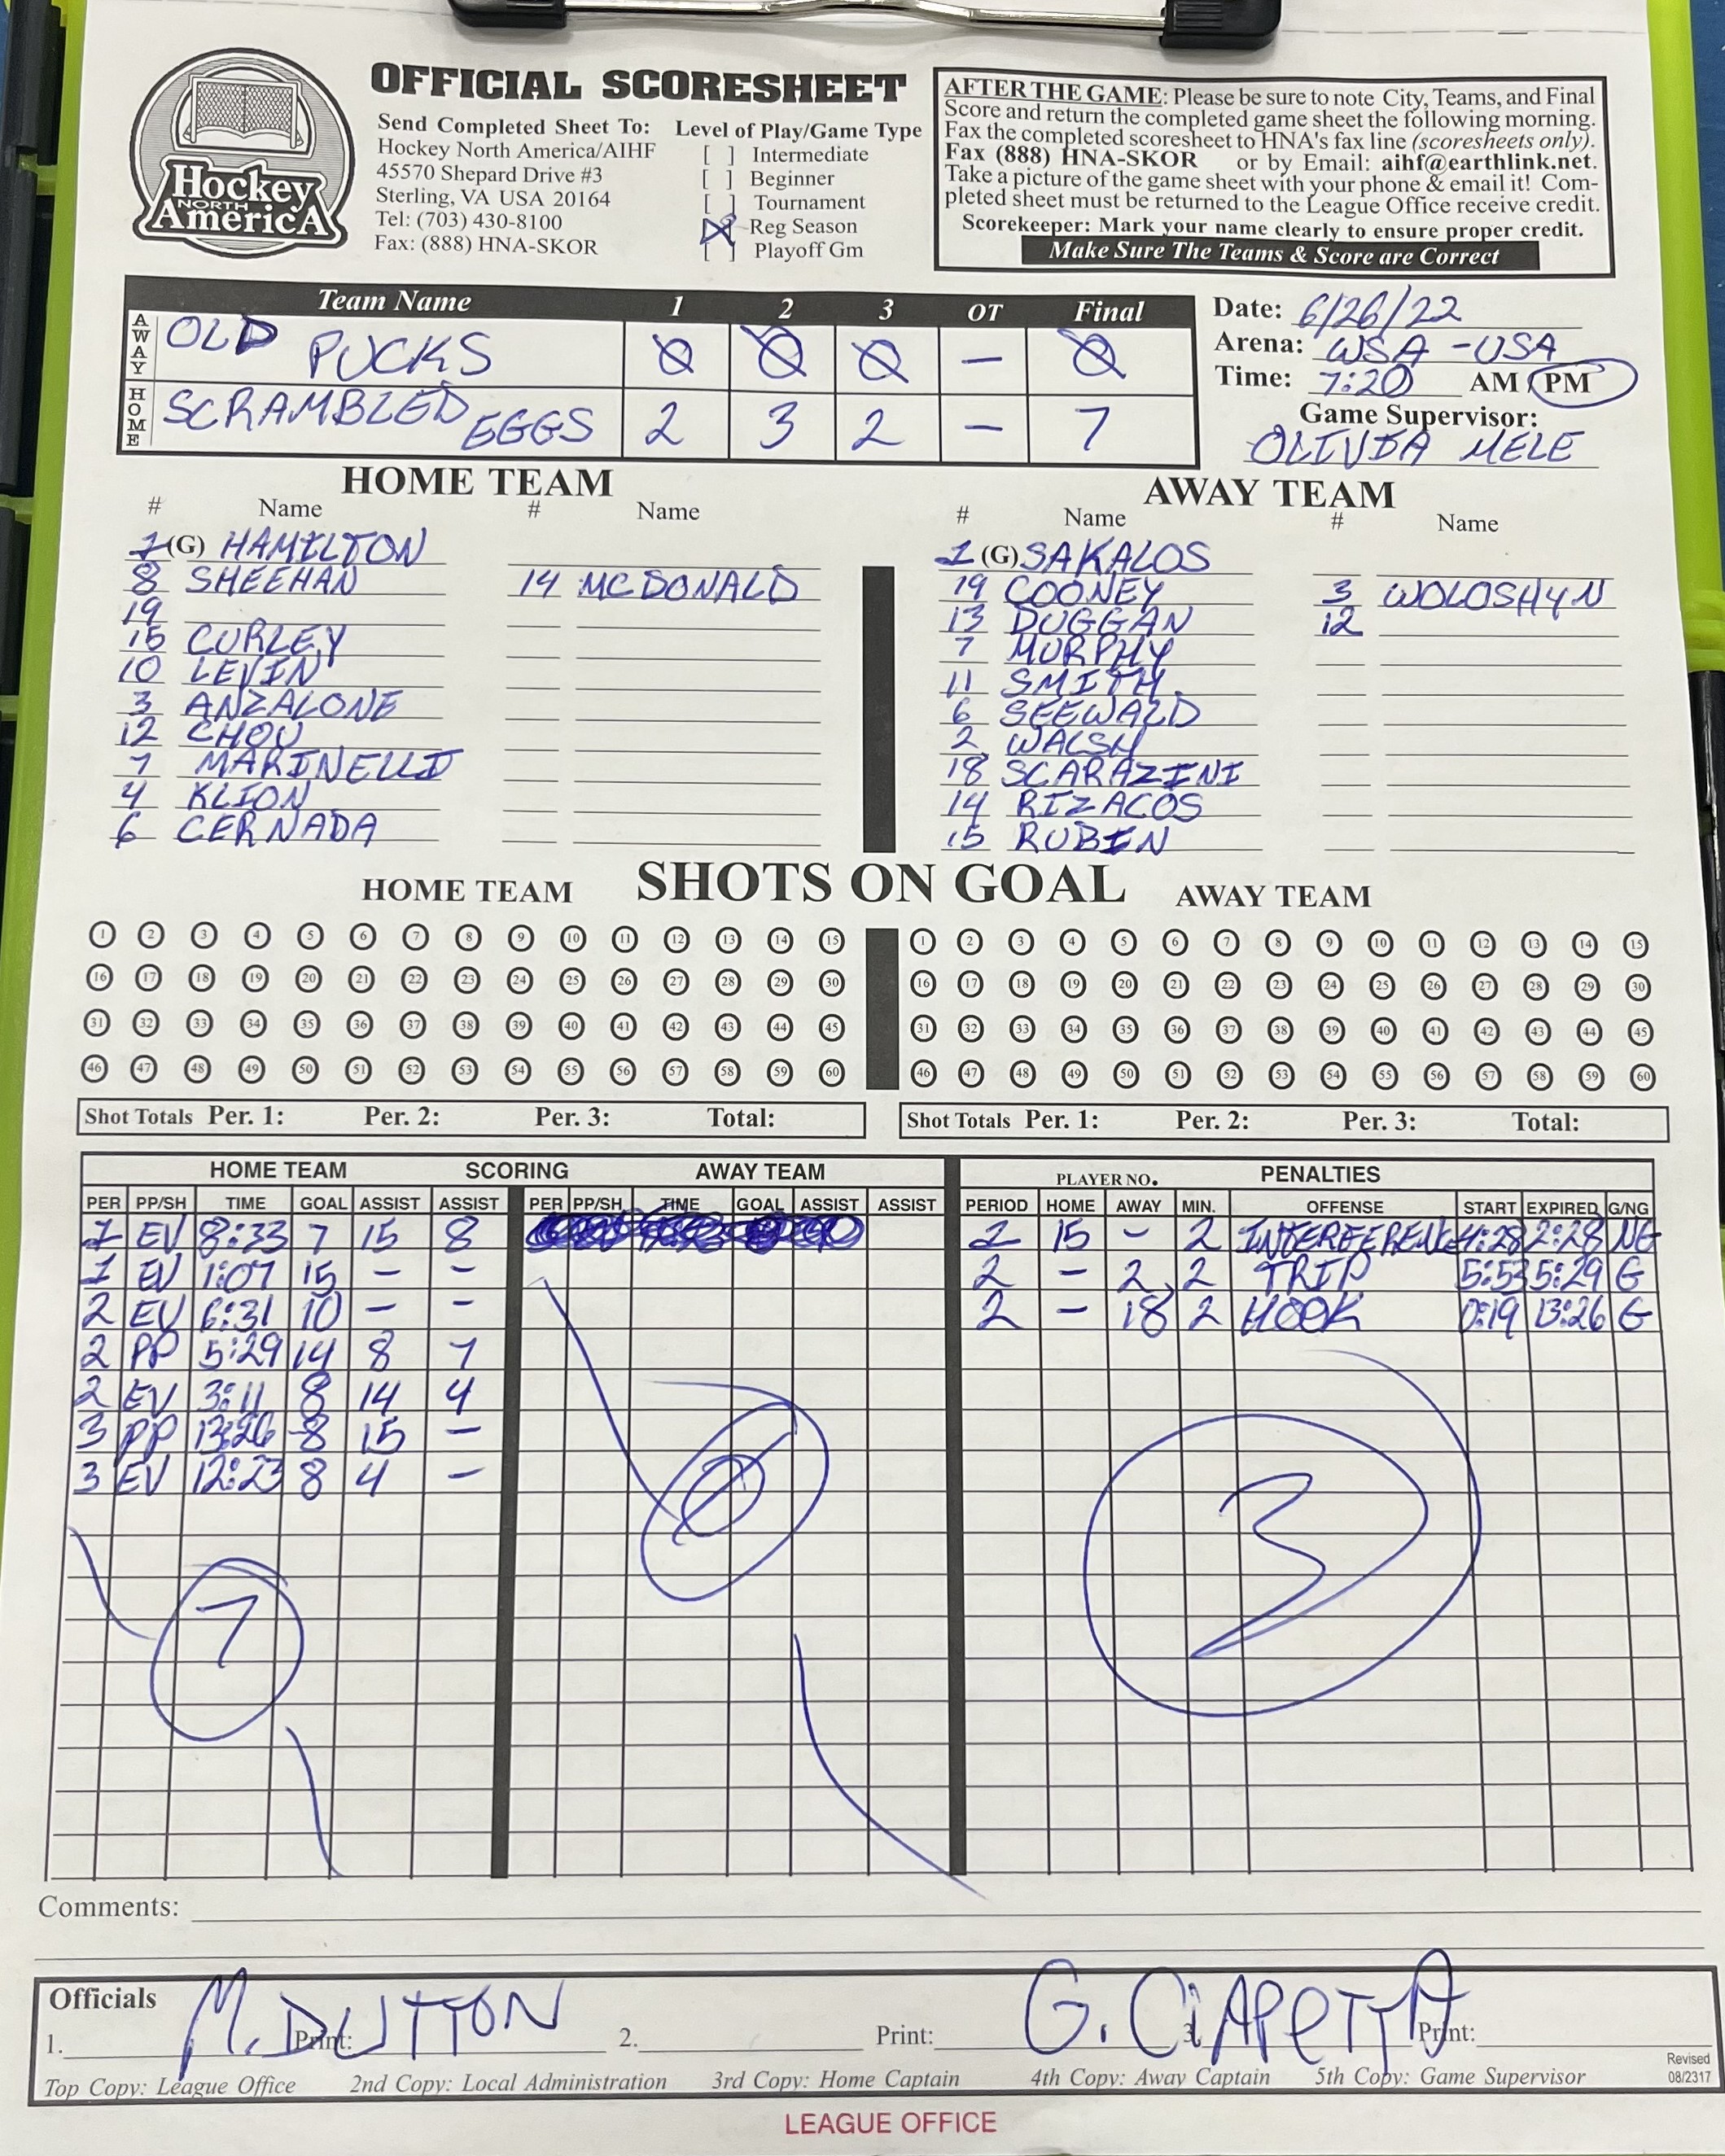 Hockey
NORTH
AmericA
OFFICIAL SCORESHEET
Send Completed Sheet To:
Hockey North America/AIHF
45570 Shepard Drive #3
Sterling, VA USA 20164
Tel: (703) 430-8100
Fax: (888) HNA-SKOR
Level of Play/Game Type
[ ] Intermediate
[ ] Beginner
[ ] Tournament
[X] Reg Season
[ ] Playoff Gm
AFTER THE GAME: Please be sure to note City, Teams, and Final
Score and return the completed game sheet the following morning.
Fax the completed scoresheet to HNA's fax line (scoresheets only).
Fax (888) HNA-SKOR or by Email: aihf@earthlink.net.
Take a picture of the game sheet with your phone & email it! Com-
pleted sheet must be returned to the League Office receive credit.
Scorekeeper: Mark your name clearly to ensure proper credit.
Make Sure The Teams & Score are Correct
Team Name 1 2 3 OT Final
AWAY OLD PUCKS 0 0 0 - 0
HOME SCRAMBLED EGGS 2 3 2 - 7
Date: 6/26/22
Arena: WSA - USA
Time: 7:20 AM / PM
Game Supervisor:
OLIVIA MELE
HOME TEAM
# Name # Name
1 (G) HAMILTON
8 SHEEHAN 14 MCDONALD
19
15 CURLEY
10 LEVIN
3 ANZALONE
12 CHOU
7 MARINELLI
4 KLION
6 CERNADA
AWAY TEAM
# Name # Name
1 (G) SAKALOS
19 COONEY 3 WOLOSHYN
13 DUGGAN 12
7 MURPHY
11 SMITH
6 SEEWALD
2 WALSH
18 SCARAZINI
14 RIZACOS
15 RUBIN
HOME TEAM SHOTS ON GOAL AWAY TEAM
1 2 3 4 5 6 7 8 9 10 11 12 13 14 15 1 2 3 4 5 6 7 8 9 10 11 12 13 14 15
16 17 18 19 20 21 22 23 24 25 26 27 28 29 30 16 17 18 19 20 21 22 23 24 25 26 27 28 29 30
31 32 33 34 35 36 37 38 39 40 41 42 43 44 45 31 32 33 34 35 36 37 38 39 40 41 42 43 44 45
46 47 48 49 50 51 52 53 54 55 56 57 58 59 60 46 47 48 49 50 51 52 53 54 55 56 57 58 59 60
Shot Totals Per. 1: Per. 2: Per. 3: Total: Shot Totals Per. 1: Per. 2: Per. 3: Total:
HOME TEAM SCORING AWAY TEAM
PER PP/SH TIME GOAL ASSIST ASSIST PER PP/SH TIME GOAL ASSIST ASSIST
1 EV 8:33 7 15 8
1 EV 1:07 15 - -
2 EV 6:31 10 - -
2 PP 5:29 14 8 7
2 EV 3:11 8 14 4
3 PP 13:26 8 15 -
3 EV 12:23 8 4 -
7
0
PLAYER NO. PENALTIES
PERIOD HOME AWAY MIN. OFFENSE START EXPIRED G/NG
2 15 - 2 INTERFERENCE 4:28 2:28 NG
2 - 2 2 TRIP 5:53 5:29 G
2 - 18 2 HOOK 0:19 13:26 G
3
Comments:
Officials
1. M. DUTTON Print: 2. Print: G. CIAPETTA 3. Print:
Top Copy: League Office 2nd Copy: Local Administration 3rd Copy: Home Captain 4th Copy: Away Captain 5th Copy: Game Supervisor
Revised
08/2317
LEAGUE OFFICE